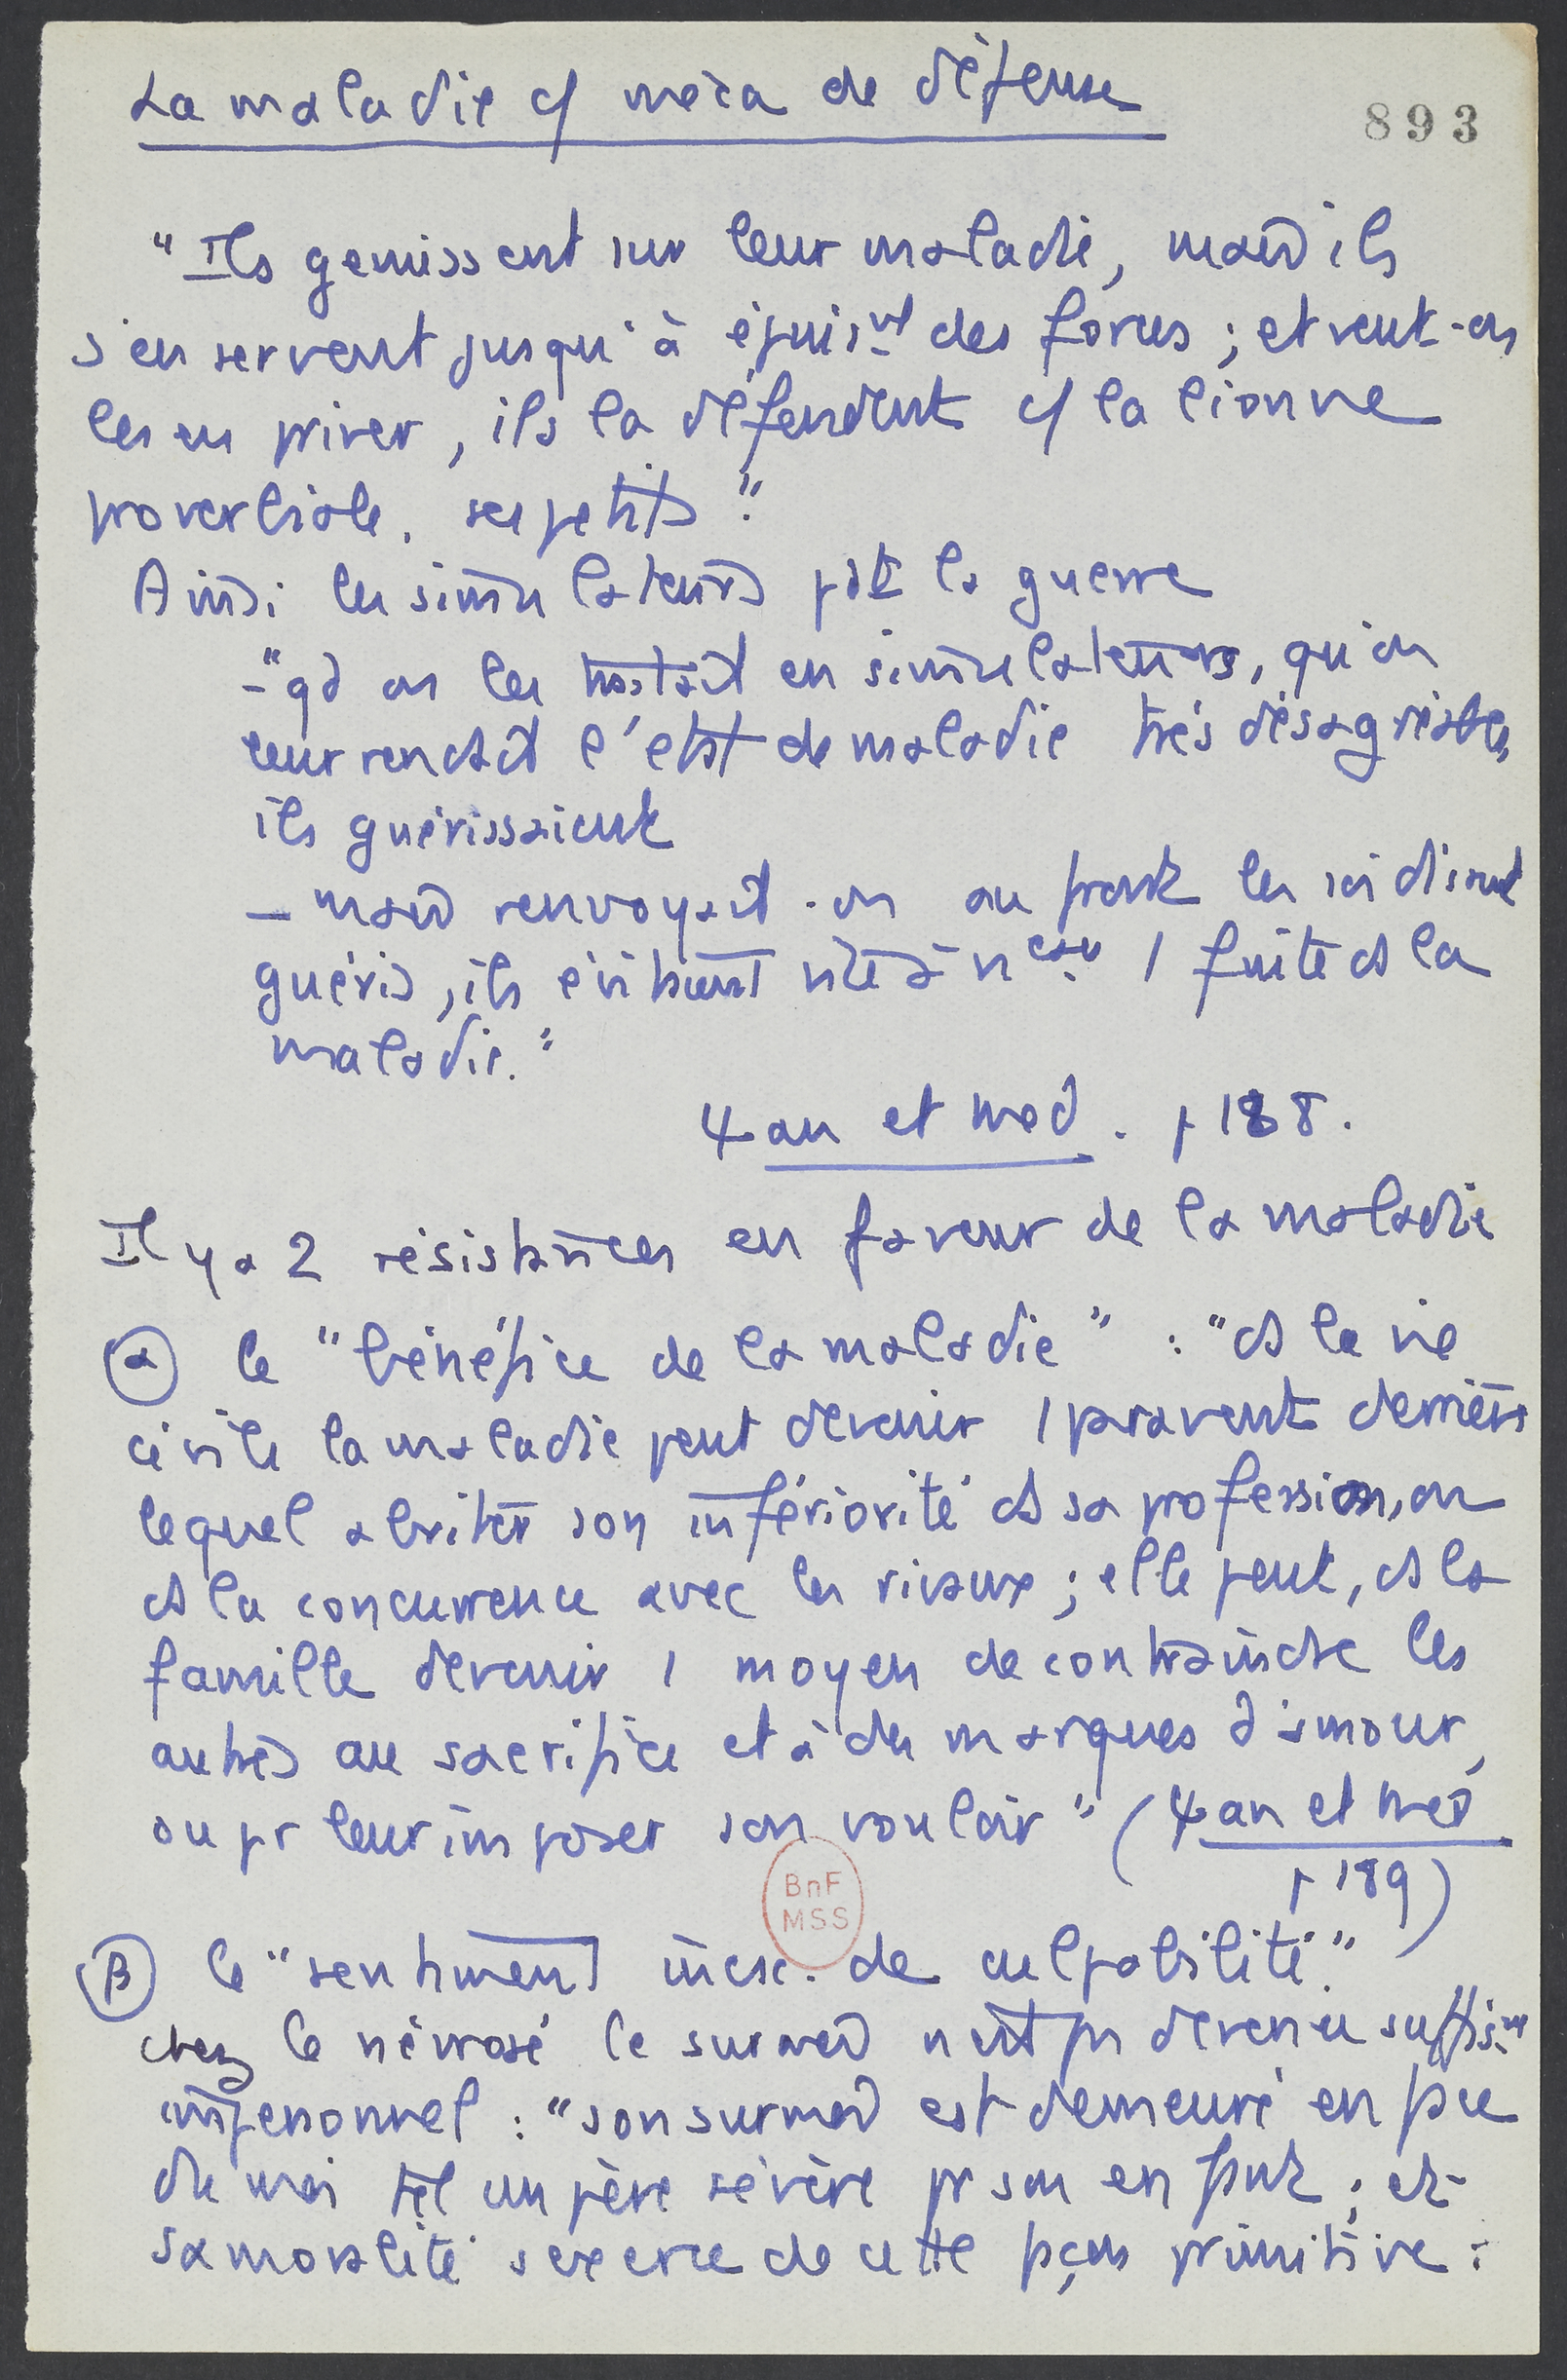 La maladie c/ méca de défense
893
"Ils gemissent sur leur maladie, mais ils
s'en servent jusqu'à épuismt des forces ; et veut-on
les en priver, ils la défendent c/ la lionne
proverbiale. ses petits".
Ainsi les simulateurs pdt la guerre
-"qd on les traitait en simulateurs, qu'on
leur rendait l'état de maladie très désagréable,
ils guérissaient
- mais renvoyait-on au front les soi disant
guéris, ils évitaient vite à nveau 1 fuite ds la
maladie."
Ψan et med. p 188.
Il y a 2 résistances en faveur de la maladie
α le "bénéfice de la maladie" : "ds la vie
civile la maladie peut devenir 1 paravent derrière
lequel abriter son infériorité ds sa profession, ou
ds la concurrence avec les rivaux ; elle peut, ds la
famille devenir 1 moyen de contraindre les
autres au sacrifice et à des marques d'amour,
ou pr leur imposer son vouloir" (Ψan et med
p 189)
BnF
MSS
β le "sentiment incsc. de culpabilité."
chez le névrosé le surmoi n'est pas devenu suffismt
impersonnel : "son surmoi est demeuré en face
du moi tel un père sévère pr son enfant ; et
sa moralité s'exerce de cette façon primitive :